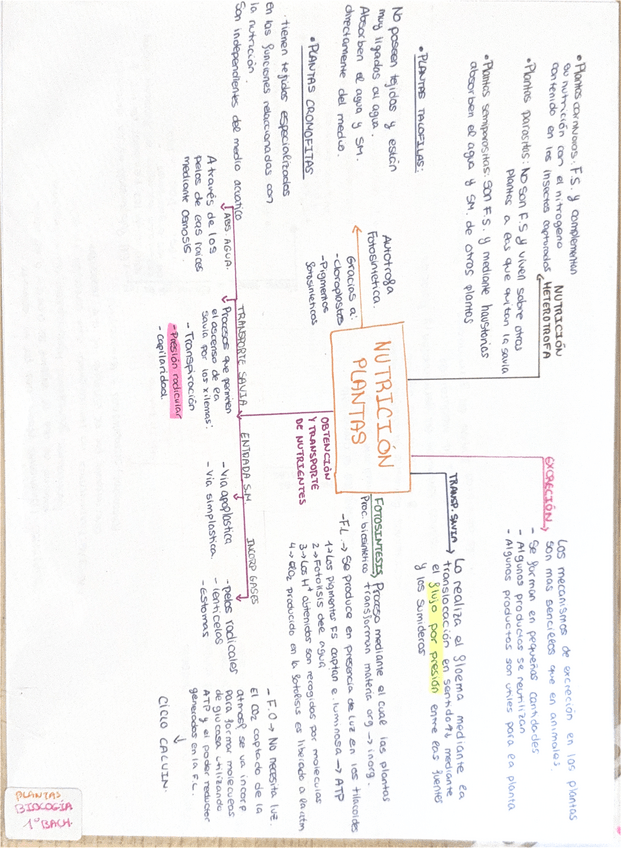 NUTRICIÓN
PLANTAS
NUTRICIÓN
HETEROTROFA
• Plantas carnívoras: F.S. y complementan
su nutrición con el nitrogeno
contenido en los insectos capturados
• Plantas parasitas: No son F.S y viven sobre otras
plantas a las que quitan la savia
• Plantas semiparasitas: Son F.S. y mediante haustorias
absorben el agua y SM. de otras plantas
Autotrofa
Fotosintetica.
Gracias a:
- Cloroplastos
- Pigmentos
fotosinteticos
• PLANTAS TALOFILAS:
No poseen tejidos y están
muy ligados al agua.
Absorben el agua y SM.
directamente del medio.
• PLANTAS CROMOFITAS
· tienen tejidos especializados
en las funciones relaccionadas con
la nutrición.
Son independientes del medio acuatico
OBTENCIÓN
Y TRANSPORTE
DE NUTRIENTES
ABS. AGUA.
A través de los
pelos de las raices
mediante osmosis.
TRANSPORTE SAVIA
Procesos que permiten
el ascenso de la
savia por los xilemas:
- Transpiración
- Presión radicular
- Capilaridad
ENTRADA S.M
- Via apoplastica
- Via simplastica.
INCORP GASES
- pelos radicales
- lenticelas
- Estomas
EXCRECIÓN
Los mecanismos de excreción en las plantas
son mas sencillos que en animales.
- Se forman en pequeñas cantidades
- Algunos productos se reutilizan
- Algunos productos son utiles para la planta
TRANSP. SAVIA
La realiza el floema mediante la
translocación en sentido ↑↓ mediante
el flujo por presión entre las fuentes
y los sumideros
FOTOSINTESIS
Proc. biosintetico
Proceso mediante el cual las plantas
transforman materia org → inorg.
- F.L. → Se produce en presencia de luz en los tilacoides
1→ Los pigmentos FS captan e. luminosa → ATP
2→ Fotolisis del agua
3→ Los H⁺ obtenidos son recogidos por moleculas
4→ El O2 producido en la fotolisis es liberado a la atm
- F.O → No necesita luz.
El CO2 captado de la
atmosf se va incorp
para formar moleculas
de glucosa utilizando
ATP y el poder reductor
generados en la F.L.
CICLO CALVIN.
PLANTAS
BIOLOGÍA
1º BACH.